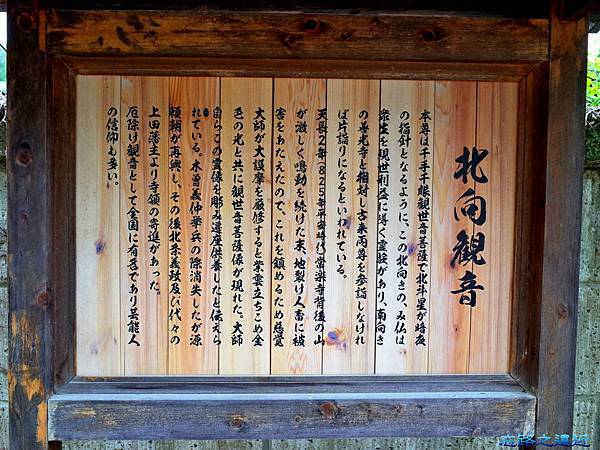 北向観音
本尊は千手千眼観世音菩薩で北斗星が暗夜
の指針となるように、この北向きの、み仏は
衆生を現世利益に導く霊験があり、南向き
の善光寺と相対し古来両尊を参詣しなけれ
ば片詣りになるといわれている。
天長2年(825年)平安時代、常楽寺背後の山
が激しく鳴動を続けた末、地裂け人畜に被
害をあたえたので、これを鎮めるため慈覚
大師が大護摩を厳修すると紫雲立ちこめ金
色の光と共に観世音菩薩像が現れた。大師
自らこの霊像を彫み遷座供養したと伝えら
れている。木曽義仲挙兵の際消失したが源
頼朝が再興し、その後北条義政及び代々の
上田藩主より寺領の寄進があった。
厄除け観音として全国に有名であり芸能人
の信仰も多い。